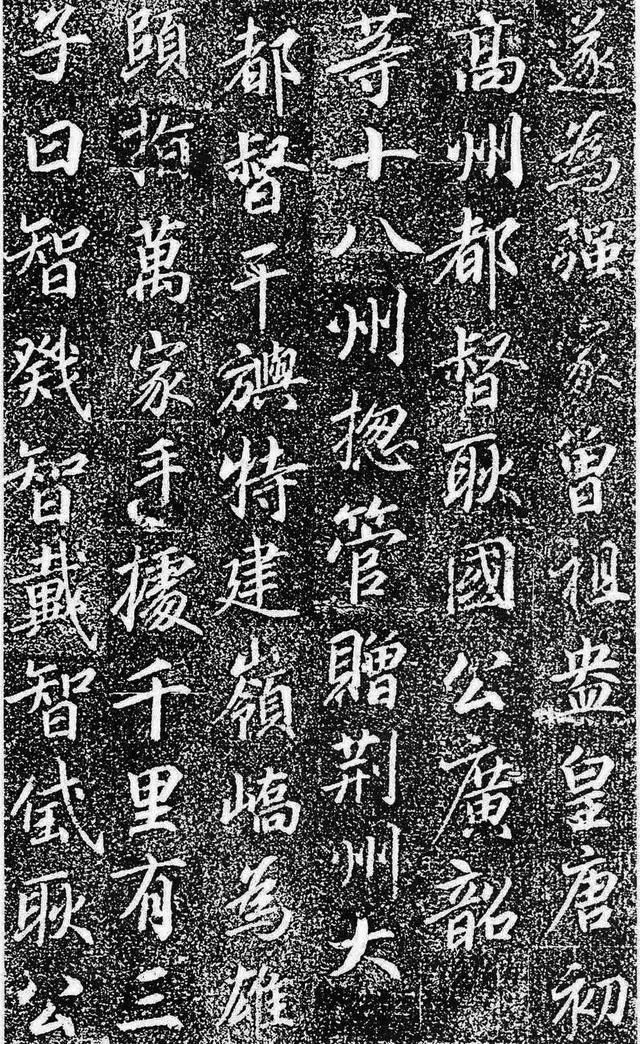 遂為强家曾祖盎皇唐初
高州都督耿國公廣韶
等十八州揔管贈荆州大
都督平旟特建嶺嶠為雄
頤指萬家手據千里有三
子曰智戣智戴智彧耿公